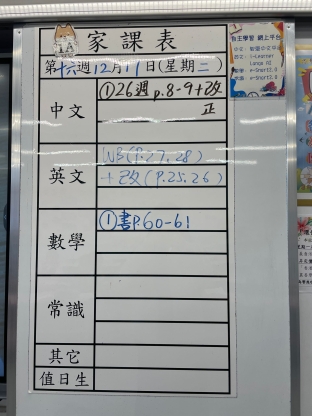 家課表
第十六週12月11日(星期二)
中文 ①26週 p.8-9+改
正
英文 WB(P.27,28)
+改(P.25,26)
數學 ①書P.60-61
常識
其它
值日生
自主學習 網上平台